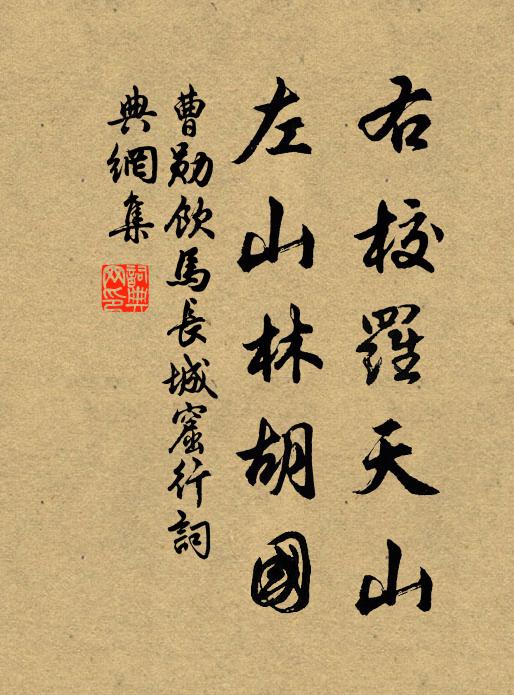 右校羅天山
左山林胡國
曹勛飲馬長城窟行詞
典網集
詞典網印